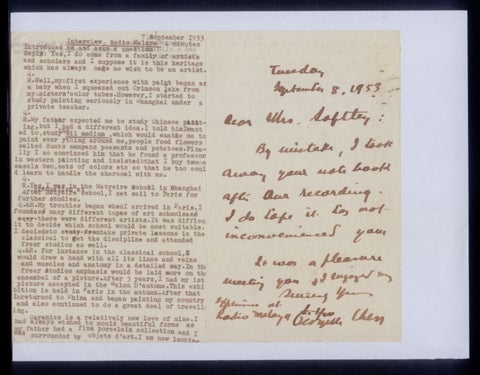 7 September 1953
Interview Radio Malaya minutes
Introduces me and asks a question
Reply: Yes, I do come from a family of artists
and scholars and I suppose it is this heritage
which has always made me wish to be an artist.
Q.
R.Well, my first experience with paint began as
a baby when I squeezed out Crimson lake from
my sisters' color tubes.However, I started to
study painting seriously in Shanghai under a
private teacher.
Q.
R.My father expected me to study Chinese paint-
ing, but I had a different idea. I told him I want
ed to study oil medium, which would enable me to
paint everything around me, people food flowers
salted ducks sampans peasants and potatoes. Fina-
lly I so convinced him that he found a professor
in western painting and insisted that I buy two
easels two, sets of colors etc so that he too coul
d learn to handle the charcoal with me.
Q
R.Yes, I was in the McTyeire School in Shanghai
After McTyeire School, I set sail to Paris for
further studies.
Q.AR.My troubles began when I arrived in Paris.I
found many different types of art schools
there were different artists.It was difficu
lt to decide which school would be most suitable.
I decided to private lessons in the
classical to get the discipline and attended
freer studios as well.
Q.AR. For instance in the classical school, I
would draw a hand with all its lines and veins
and muscles and anatomy in a detailed way. In the
freer studios emphasis would be laid more on the
ensemble of a picture.After 3 years, I had my 1st
picture accepted in the Salon D'automne.This exhi
bition is held in Paris in the autumn.After that
I returned to China and began painting my country
and also continued to do a great deal of travell
ing.
Ceramics is a relatively new love of mine.I
had always wished to mould beautiful forms as
my father had a fine porcelain collection and I
was surrounded by objets d'art.I am now lookin-
Tuesday
September 8, 1953
Dear Mrs. Softley:
By mistake, I took
away your note book
after our recording.
I do hope it has not
inconvenienced you.
It was a pleasure
meeting you & I enjoyed my
Sincerely Yours
experience at
Radio Malaya
Georgette Chen